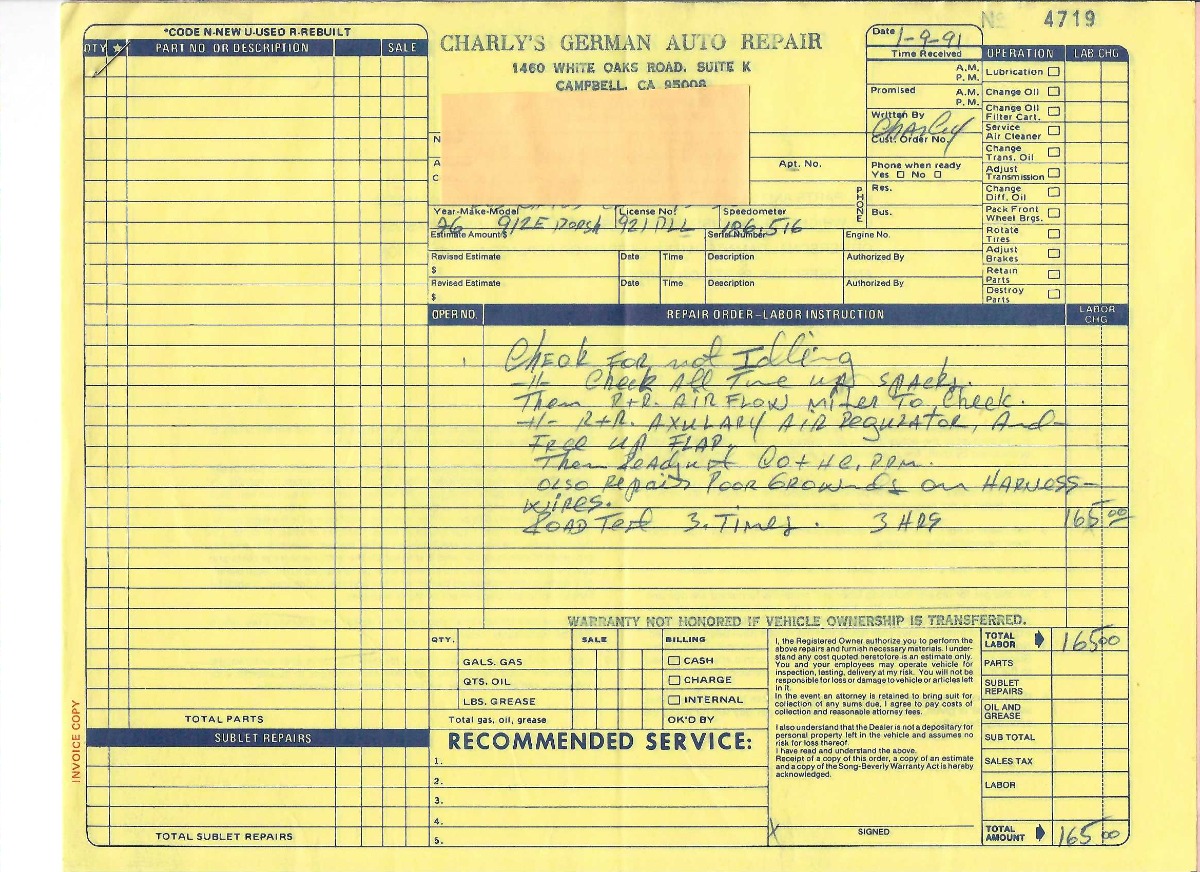 *CODE N-NEW U-USED R-REBUILT
QTY ★ PART NO. OR DESCRIPTION SALE
TOTAL PARTS
SUBLET REPAIRS
TOTAL SUBLET REPAIRS
INVOICE COPY
CHARLY'S GERMAN AUTO REPAIR
1460 WHITE OAKS ROAD, SUITE K
CAMPBELL, CA 95008
No 4719
Date 1-9-91
Time Received
A.M.
P.M.
Promised A.M.
P.M.
Written By Charley
Cust. Order No.
Phone when ready
Yes ☐ No ☐
N
A
C
Apt. No.
PHONE
Res.
Bus.
Year-Make-Model License No. Speedometer
76 912E Porsh 921 PLL 186,516
Estimate Amount $ Serial Number Engine No.
Revised Estimate Date Time Description Authorized By
$
Revised Estimate Date Time Description Authorized By
$
OPERATION LAB CHG
Lubrication ☐
Change Oil ☐
Change Oil Filter Cart. ☐
Service Air Cleaner ☐
Change Trans. Oil ☐
Adjust Transmission ☐
Change Diff. Oil ☐
Pack Front Wheel Brgs. ☐
Rotate Tires ☐
Adjust Brakes ☐
Retain Parts ☐
Destroy Parts ☐
OPER NO. REPAIR ORDER-LABOR INSTRUCTION LABOR CHG
1 Check FOR not Idling
-//- Check All Tune up spacks.
Then R+R. AIR FLOW miter To Check.
-//- R+R. AXULARY AIR Regulator, And-
Free up FLAP.
Then Readjust CO + HC, PPM.
also Repairs POOR GROWnds on HARNESS-
wires.
ROAD Test 3. Times. 3 HRS 165 00
WARRANTY NOT HONORED IF VEHICLE OWNERSHIP IS TRANSFERRED.
QTY. SALE BILLING
GALS. GAS ☐ CASH
QTS. OIL ☐ CHARGE
LBS. GREASE ☐ INTERNAL
Total gas, oil, grease OK'D BY
RECOMMENDED SERVICE:
1.
2.
3.
4.
5.
I, the Registered Owner authorize you to perform the
above repairs and furnish necessary materials. I under-
stand any cost quoted heretofore is an estimate only.
You and your employees may operate vehicle for
inspection, testing, delivery at my risk. You will not be
responsible for loss or damage to vehicle or articles left
in it.
In the event an attorney is retained to bring suit for
collection of any sums due. I agree to pay costs of
collection and reasonable attorney fees.
I also understand that the Dealer is not a depositary for
personal property left in the vehicle and assumes no
risk for loss thereof.
I have read and understand the above.
Receipt of a copy of this order, a copy of an estimate
and a copy of the Song-Beverly Warranty Act is hereby
acknowledged.
X SIGNED
TOTAL LABOR 165 00
PARTS
SUBLET REPAIRS
OIL AND GREASE
SUB TOTAL
SALES TAX
LABOR
TOTAL AMOUNT 165 00